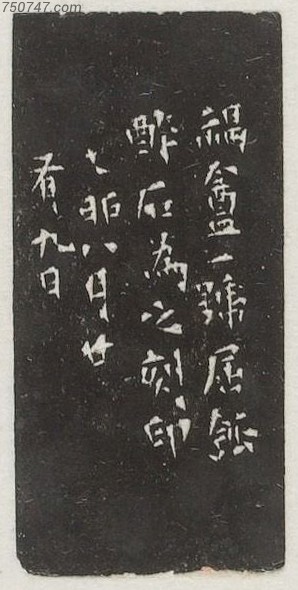 750747.com
禍盦一號屈飯
醉后為之刻印
乙卯八月廿
有九日